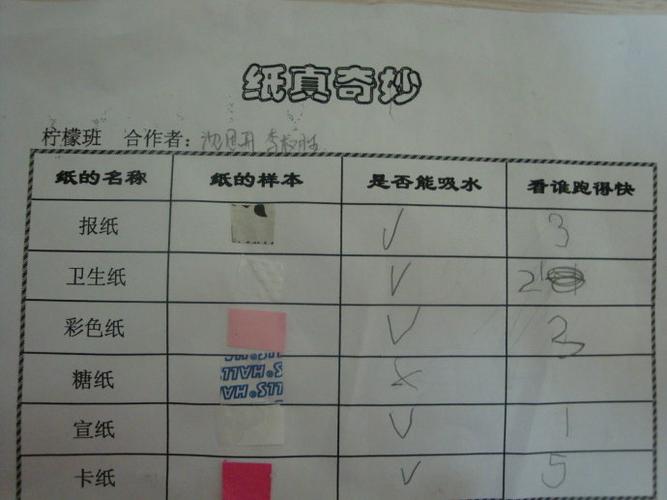 纸真奇妙
柠檬班 合作者：
纸的名称 纸的样本 是否能吸水 看谁跑得快
报纸 √ 3
卫生纸 √ 2
彩色纸 √
糖纸 LLS®HALLS ×
宣纸 √ 1
卡纸 √ 5